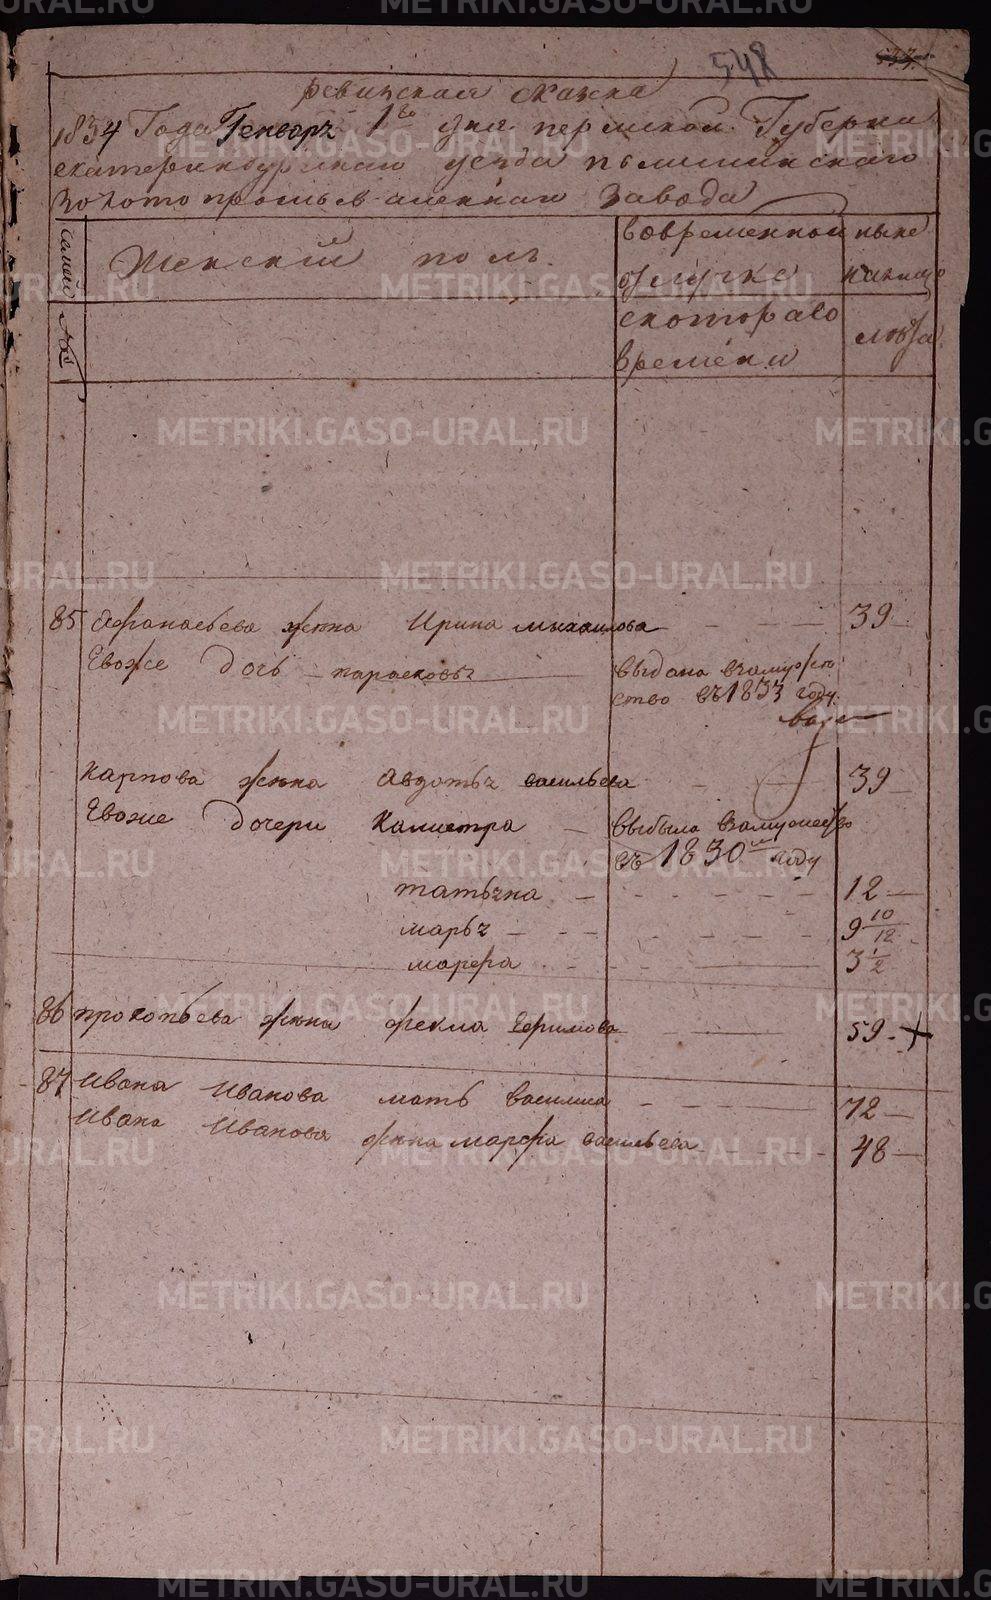 548
ревизская сказка
1834 Года Генваря 1го дня пермской Губернии
екатеринбурскаго уезда пышминскаго
Золотопромываленнаго Завода
семей №
Женский полъ
вовременной отлучке
скотораво времени
ныне налице
лета
85 Афанасьева жена Ирина михаилова 39
Евоже дочь парасковья выдана взамужство въ 1833 году
карпова жена Авдотья васильева 39
Евоже дочери Калистра выбыла взамужество въ 1830м году
татьяна 12
марья 9 10/12
марфа 3 1/2
86 прокопьева жена фекла Ефимова 59
87 Ивана Иванова мать василиса 72
Ивана Иванова жена марфа васильева 48
METRIKI.GASO-URAL.RU